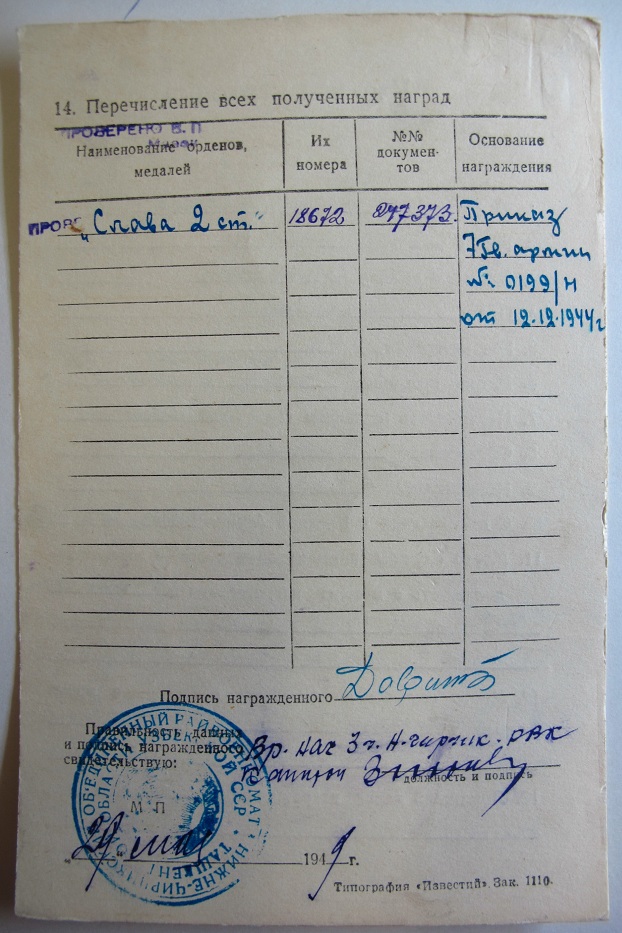 14. Перечисление всех полученных наград
ПРОВЕРЕНО В. П
Наименование орденов,
медалей
Их
номера
№№
докумен-
тов
Основание
награждения
ПРОВЕ
„Слава 2 ст."
18672
247373.
Приказ
7 Гв. армии
№ 0199/н
от 12.12.1944 г
Подпись награжденного
Правильность данных
и подпись награжденного
свидетельствую:
Вр. нач 3 ч. Н-Чирчик. РВК
Капитан
должность и подпись
ОБ'ЕДИНЕННЫЙ РАЙВОЕНКОМАТ НИЖНЕ-ЧИРЧИКС
УЗБЕКСКОЙ ССР ТАШКЕНТ
М П
„29" мая 1949 г.
Типография «Известий». Зак. 1110.